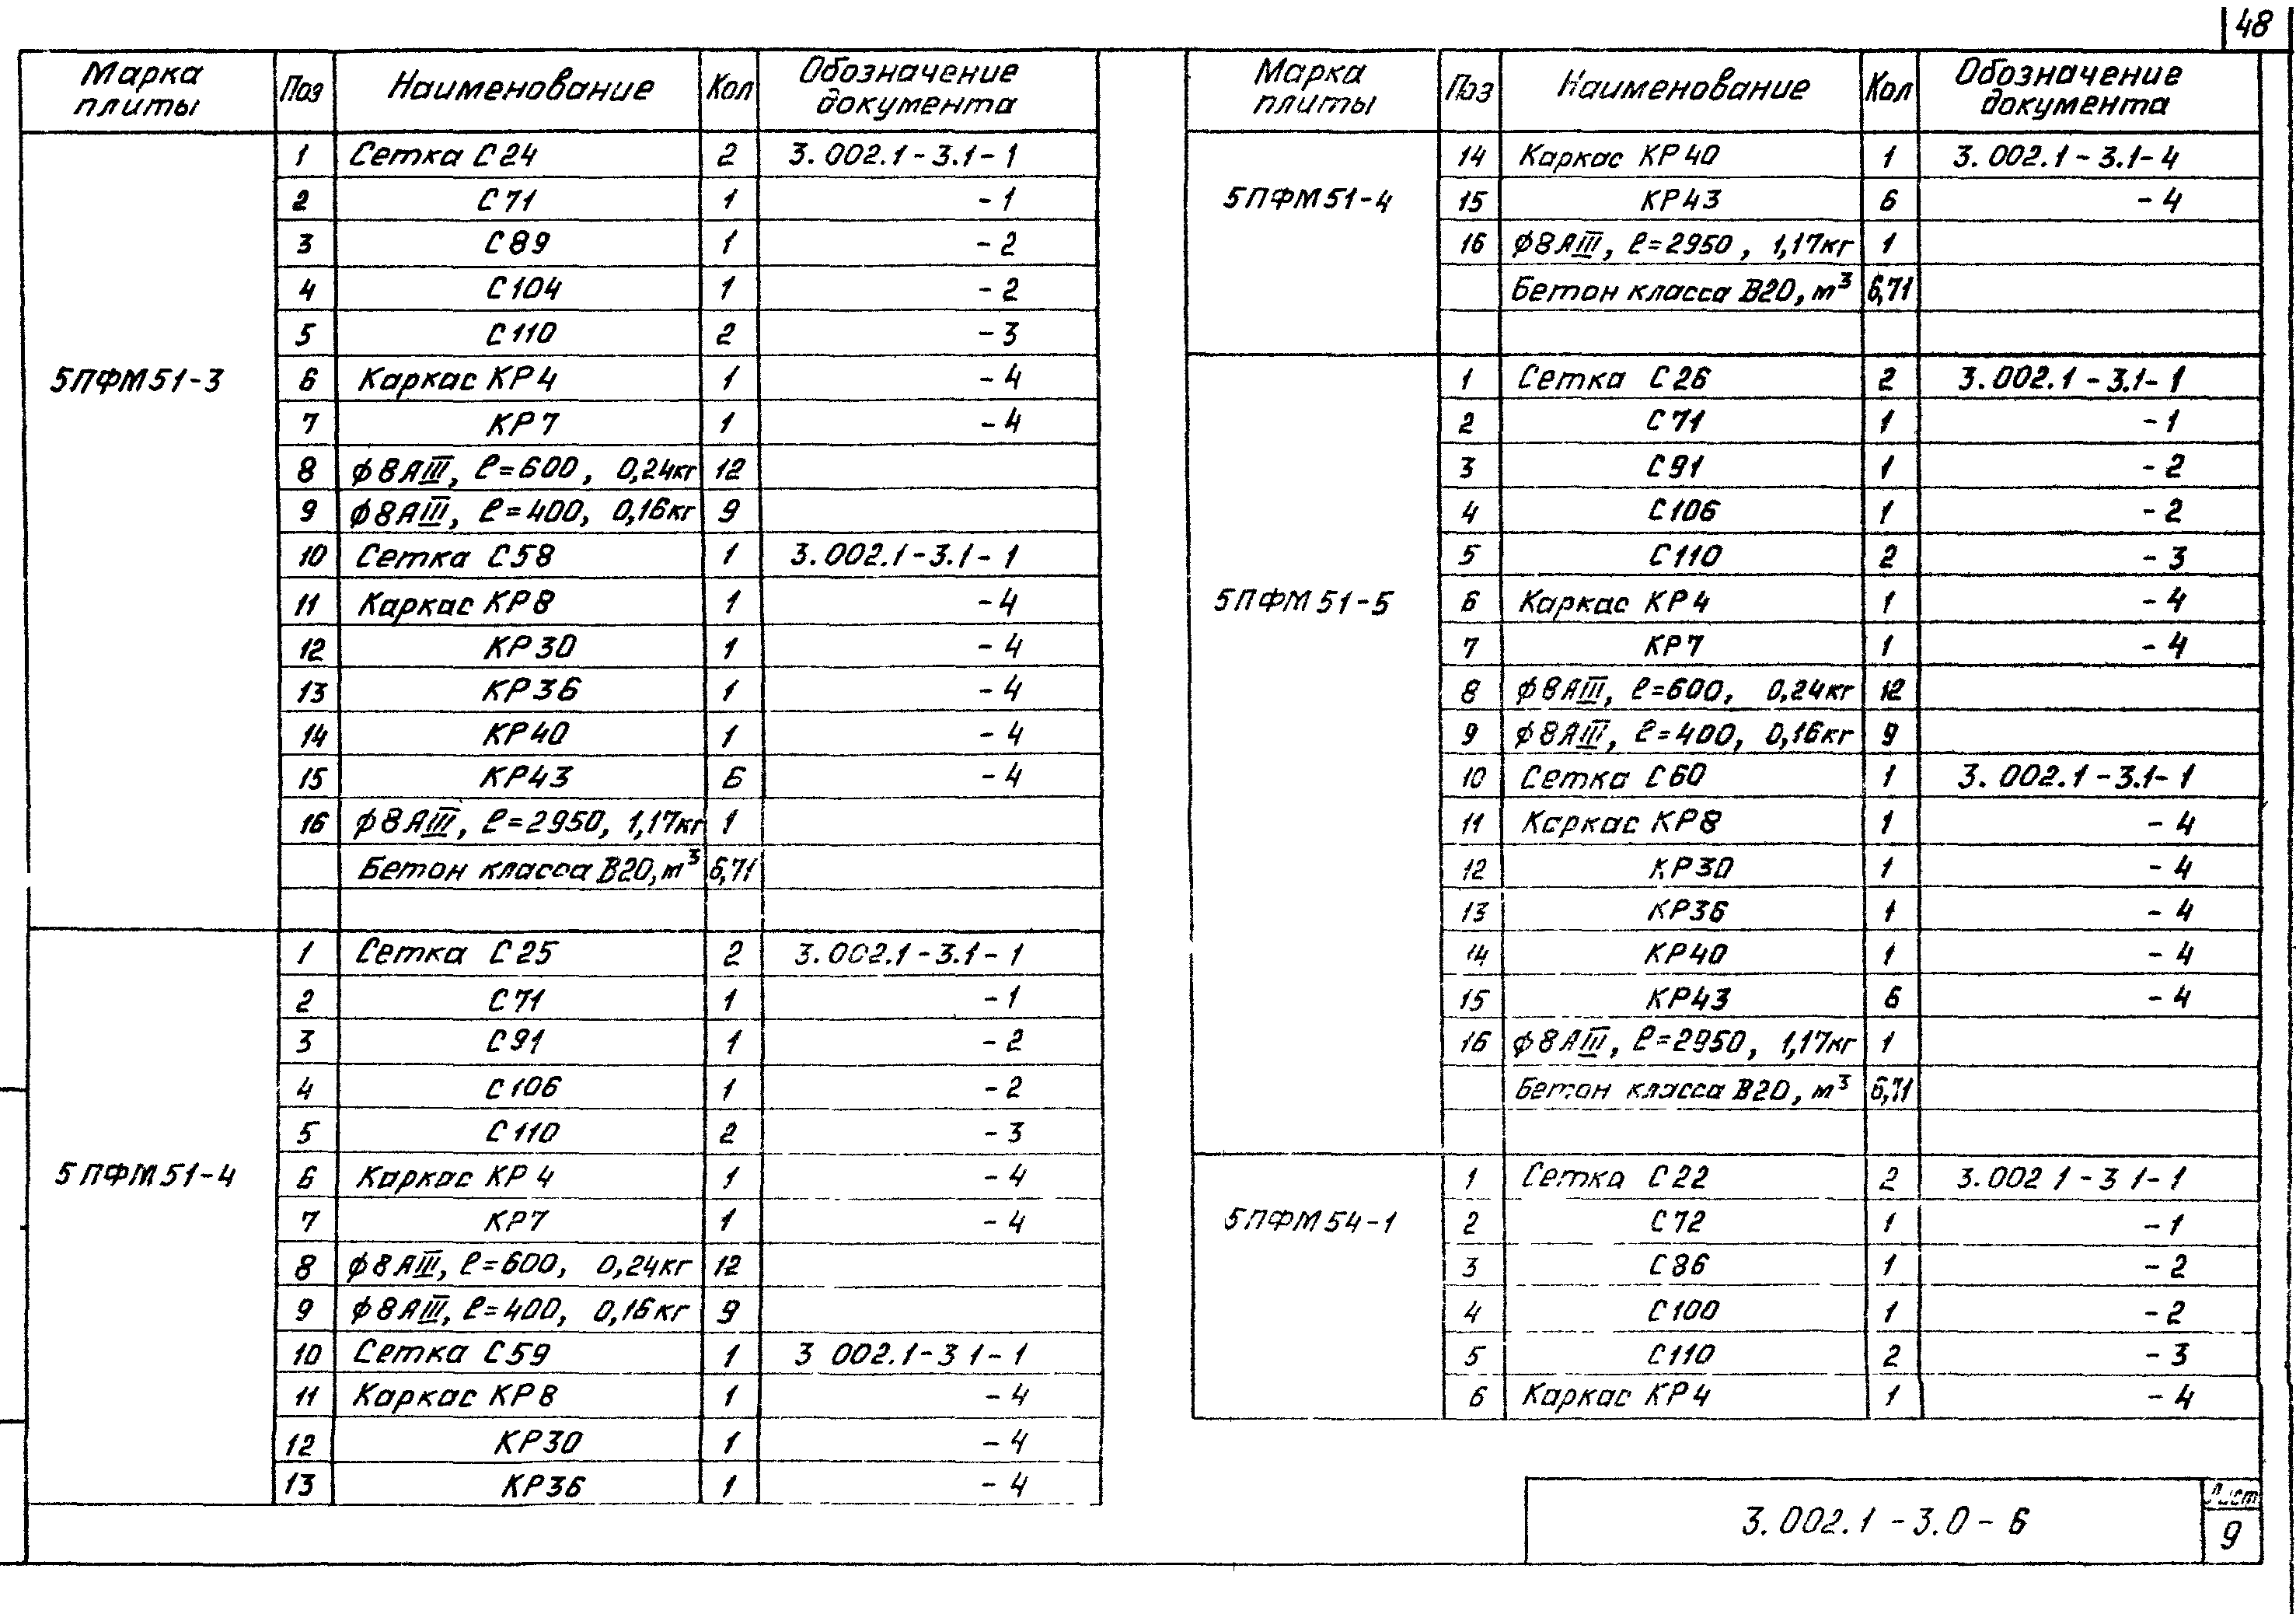 48
Марка плиты Поз Наименование Кол Обозначение документа
1 Сетка С24 2 3.002.1-3.1-1
2 С71 1 -1
3 С89 1 -2
4 С104 1 -2
5 С110 2 -3
5ПФМ51-3 6 Каркас КР4 1 -4
7 КР7 1 -4
8 ф8АIII, ℓ=600, 0,24кг 12
9 ф8АIII, ℓ=400, 0,16кг 9
10 Сетка С58 1 3.002.1-3.1-1
11 Каркас КР8 1 -4
12 КР30 1 -4
13 КР36 1 -4
14 КР40 1 -4
15 КР43 6 -4
16 ф8АIII, ℓ=2950, 1,17кг 1
Бетон класса В20, м³ 6,71
1 Сетка С25 2 3.002.1-3.1-1
2 С71 1 -1
3 С91 1 -2
4 С106 1 -2
5 С110 2 -3
5ПФМ51-4 6 Каркас КР4 1 -4
7 КР7 1 -4
8 ф8АIII, ℓ=600, 0,24кг 12
9 ф8АIII, ℓ=400, 0,16кг 9
10 Сетка С59 1 3 002.1-3 1-1
11 Каркас КР8 1 -4
12 КР30 1 -4
13 КР36 1 -4
Марка плиты Поз Наименование Кол Обозначение документа
14 Каркас КР40 1 3.002.1-3.1-4
5ПФМ51-4 15 КР43 6 -4
16 ф8АIII, ℓ=2950, 1,17кг 1
Бетон класса В20, м³ 6,71
1 Сетка С26 2 3.002.1-3.1-1
2 С71 1 -1
3 С91 1 -2
4 С106 1 -2
5 С110 2 -3
5ПФМ51-5 6 Каркас КР4 1 -4
7 КР7 1 -4
8 ф8АIII, ℓ=600, 0,24кг 12
9 ф8АIII, ℓ=400, 0,16кг 9
10 Сетка С60 1 3.002.1-3.1-1
11 Каркас КР8 1 -4
12 КР30 1 -4
13 КР36 1 -4
14 КР40 1 -4
15 КР43 6 -4
16 ф8АIII, ℓ=2950, 1,17кг 1
Бетон класса В20, м³ 6,71
1 Сетка С22 2 3.002 1-3 1-1
5ПФМ54-1 2 С72 1 -1
3 С86 1 -2
4 С100 1 -2
5 С110 2 -3
6 Каркас КР4 1 -4
3.002.1-3.0-6
Лист
9